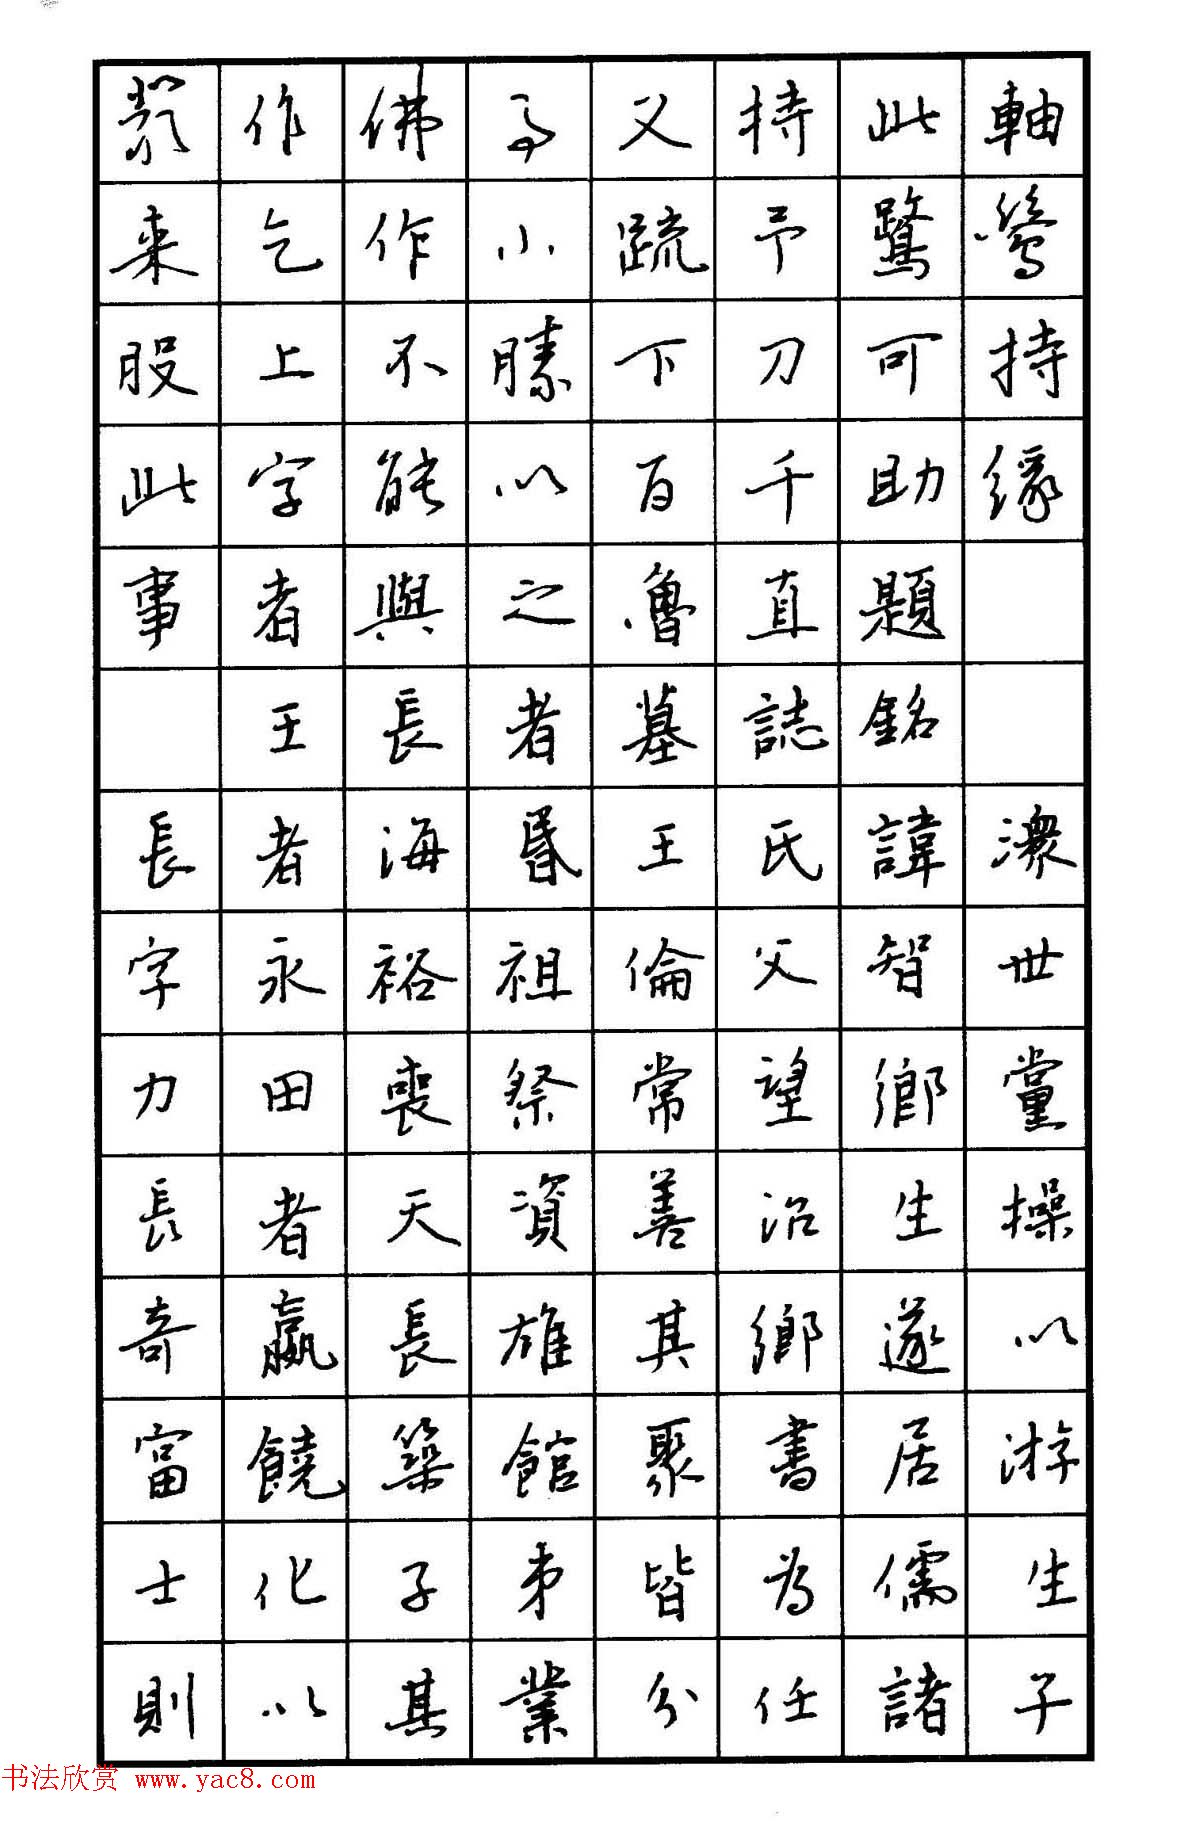 作佛事又持此軸
来乞作小疏予鷺鶯
股上不膝下刀可持
此字能以百千助緣
事者與之魯直題
王長者墓誌銘
長者海昬王氏諱潨
字永裕祖倫父智世
力田喪祭常望鄉黨
長者天資善治生操
奇贏長雄其鄉遂以
富饒築館聚書居游
士化子弟皆為儒生
則以其業分任諸子
书法欣赏 www.yac8.com